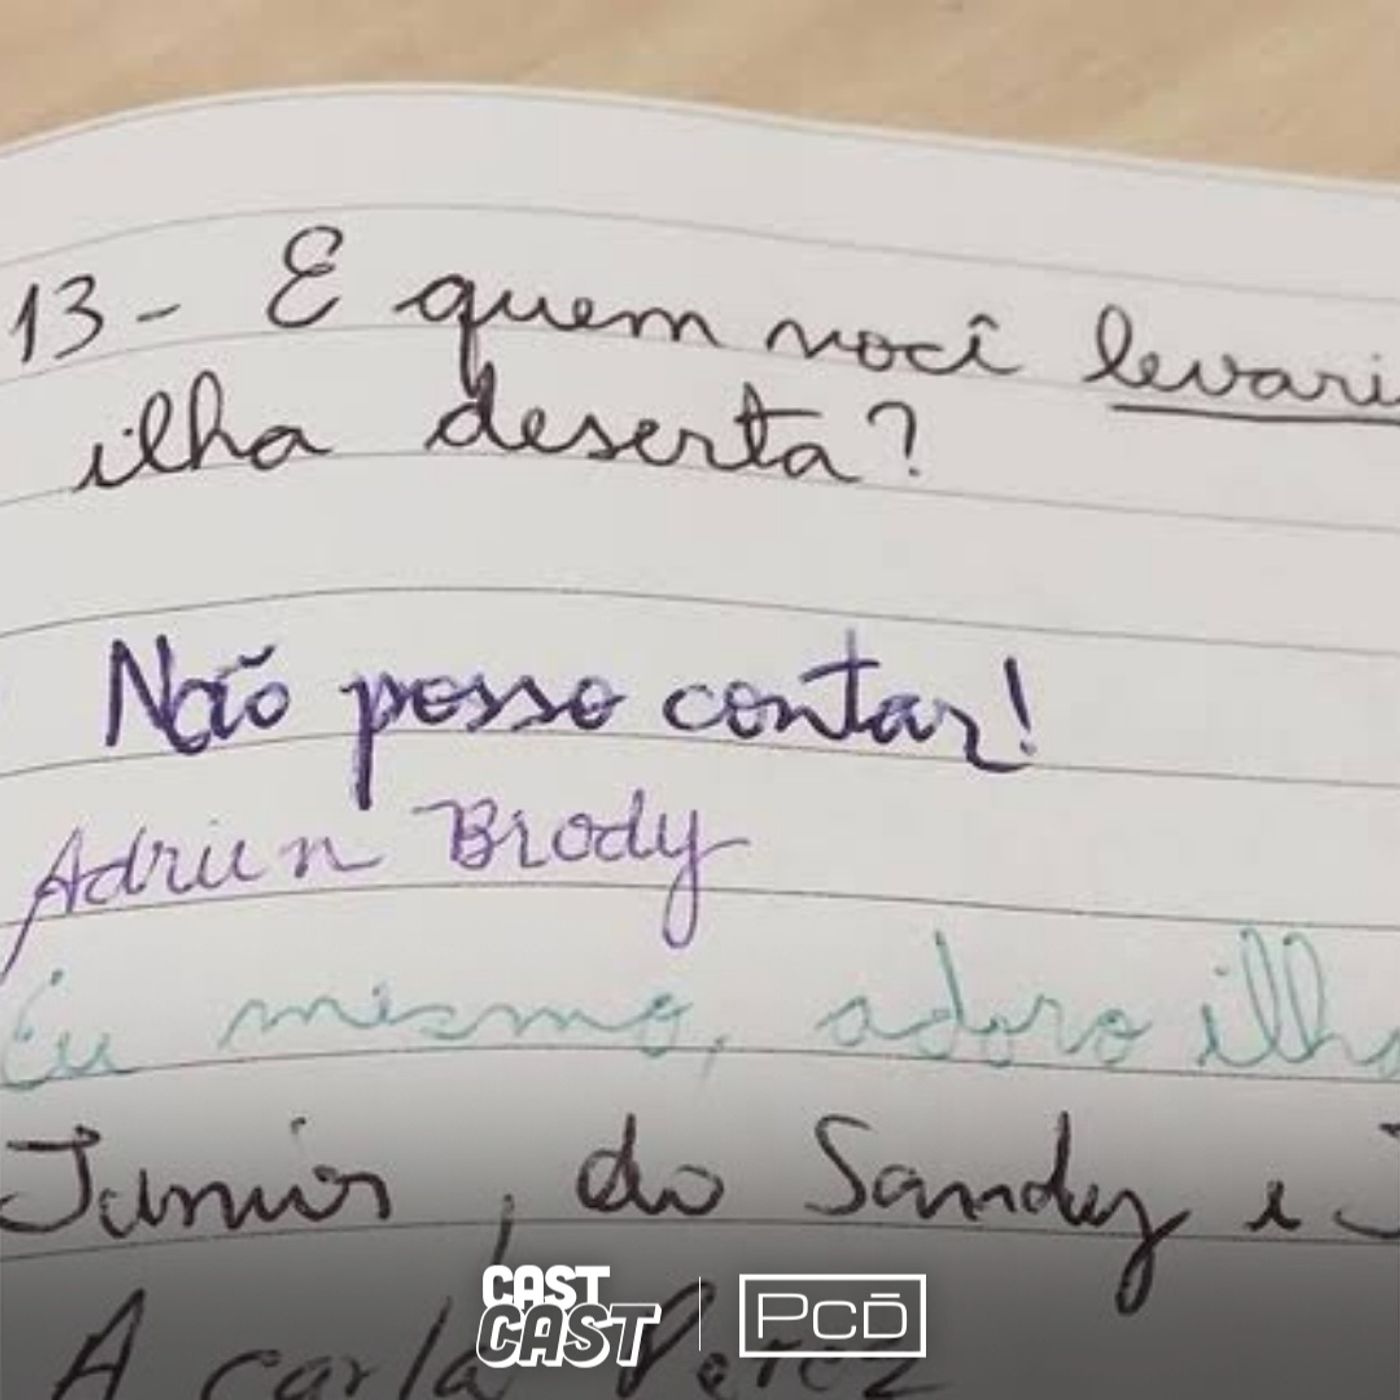 13 - E quem você levari
ilha deserta?
Não posso contar!
Adrien Brody
Eu mesmo, adoro ilha
Junior, do Sandy e J
A carla Perez
CAST
CAST
PcD